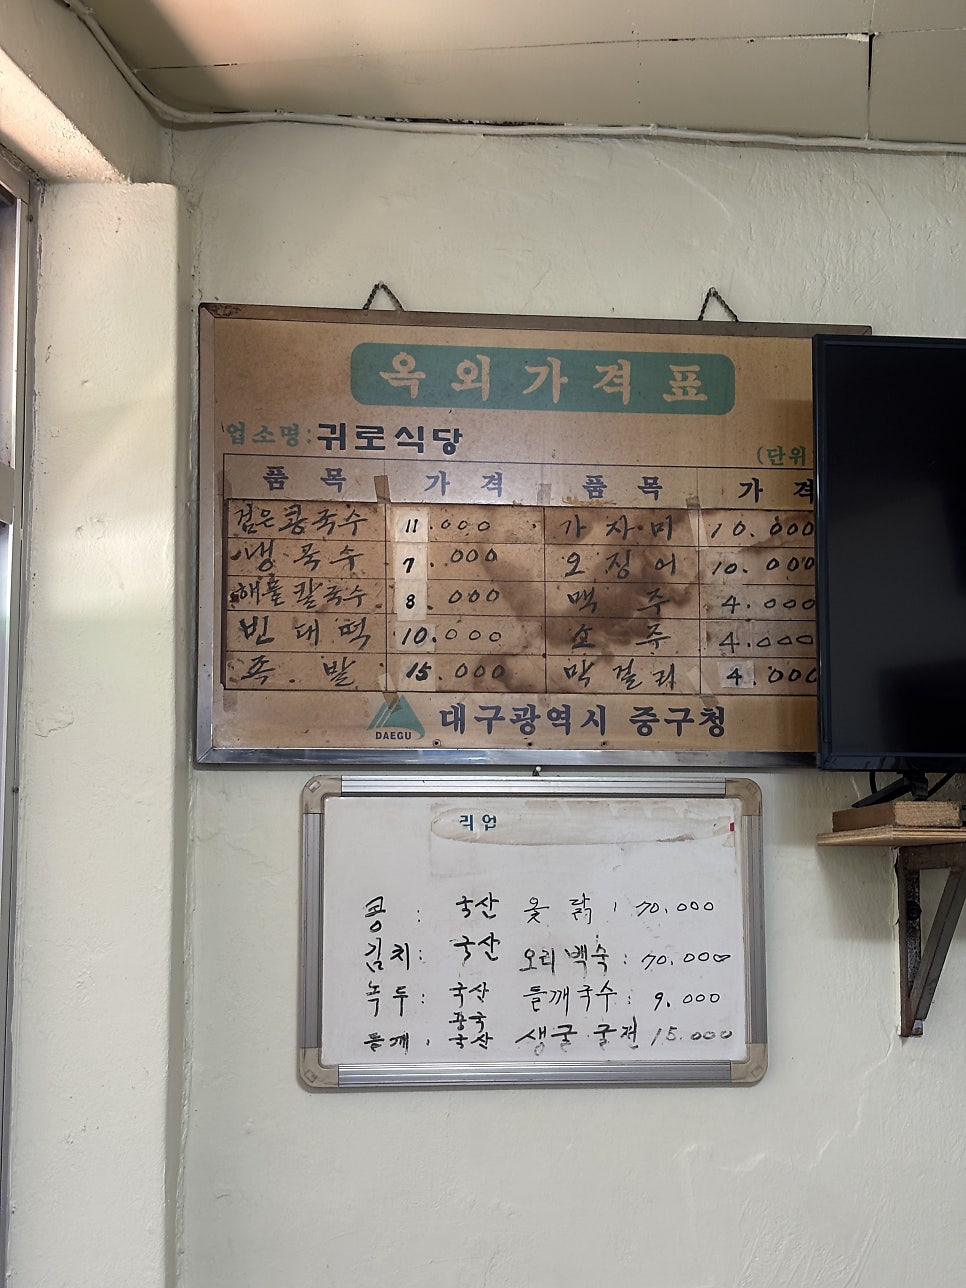 옥외가격표
업소명: 귀로식당
(단위
품목 가격 품목 가격
검은콩국수 11.000 가자미 10.000
냉국수 7.000 오징어 10.000
해물칼국수 8.000 맥주 4.000
빈대떡 10.000 소주 4.000
족발 15.000 막걸리 4.000
DAEGU 대구광역시 중구청
콩 : 국산 옻닭 : 70.000
김치 : 국산 오리백숙 : 70.000
녹두 : 국산 들깨국수 : 9.000
중국
들깨 : 국산 생굴 굴전 15.000